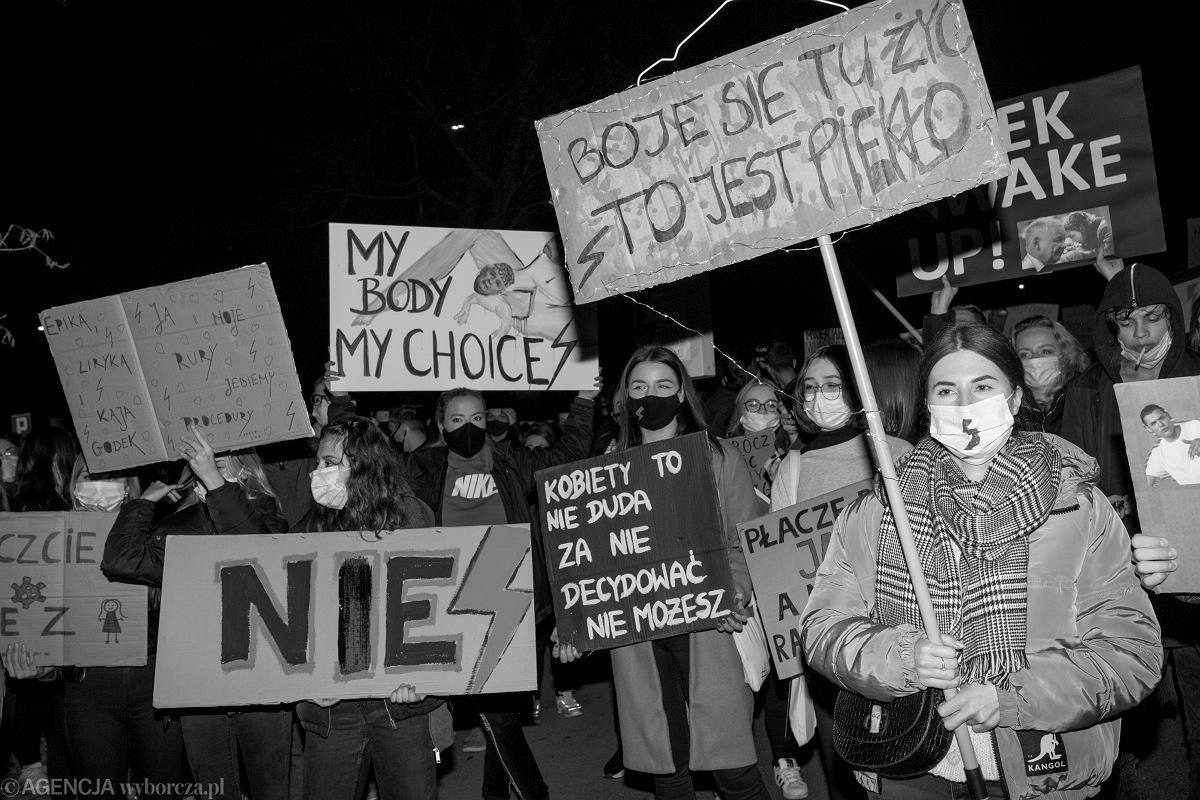 BOJE SIE TU ŻYĆ
TO JEST PiEKŁO
EK
WAKE
UP!
MY
BODY
MY CHOICE
EPIKA,
LIRYKA
KAJA
GODEK
JA
MOJE
RURY
JEBIEMY
PROCEDURY
NIE
NIKE
KOBIETY TO
NIE DUDA
ZA NIE
DECYDOWAĆ
NIE MOŻESZ
PŁACZĘ
JA
A
CZCIE
E
Z
KANGOL
© AGENCJA wyborcza.pl